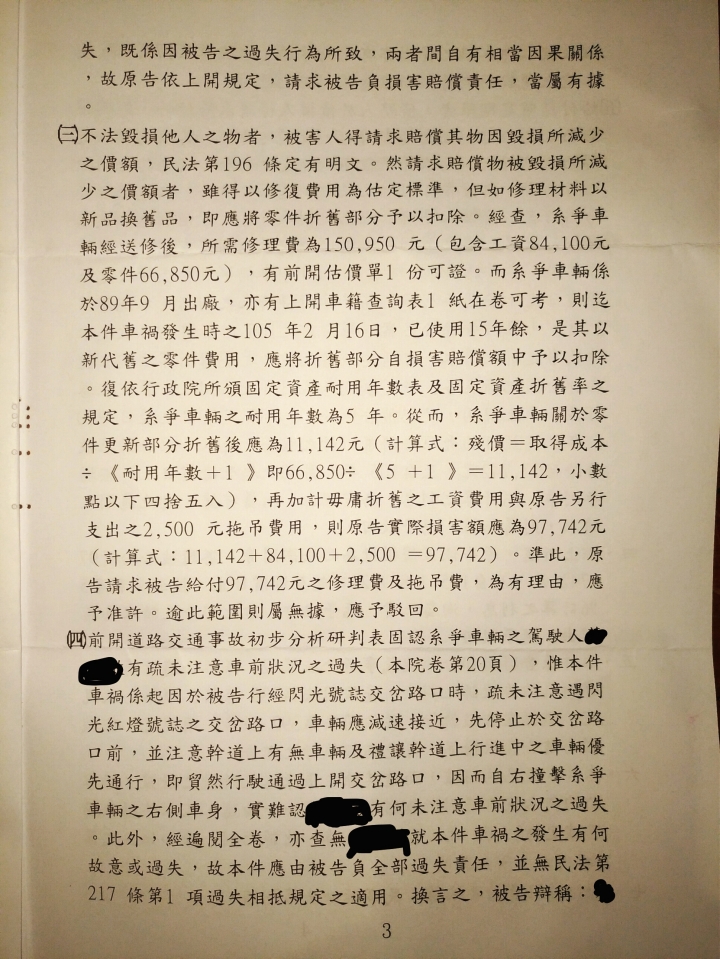 失，既係因被告之過失行為所致，兩者間自有相當因果關係
，故原告依上開規定，請求被告負損害賠償責任，當屬有據
。
㈢不法毀損他人之物者，被害人得請求賠償其物因毀損所減少
之價額，民法第196 條定有明文。然請求賠償物被毀損所減
少之價額者，雖得以修復費用為估定標準，但如修理材料以
新品換舊品，即應將零件折舊部分予以扣除。經查，系爭車
輛經送修後，所需修理費為150,950 元（包含工資84,100元
及零件66,850元），有前開估價單1 份可證。而系爭車輛係
於89年9 月出廠，亦有上開車籍查詢表1 紙在卷可考，則迄
本件車禍發生時之105 年2 月16日，已使用15年餘，是其以
新代舊之零件費用，應將折舊部分自損害賠償額中予以扣除
。復依行政院所頒固定資產耐用年數表及固定資產折舊率之
規定，系爭車輛之耐用年數為5 年。從而，系爭車輛關於零
件更新部分折舊後應為11,142元（計算式：殘價＝取得成本
÷ 《耐用年數＋1 》即66,850÷ 《5 ＋1 》＝11,142，小數
點以下四捨五入），再加計毋庸折舊之工資費用與原告另行
支出之2,500 元拖吊費用，則原告實際損害額應為97,742元
（計算式：11,142＋84,100＋2,500 ＝97,742）。準此，原
告請求被告給付97,742元之修理費及拖吊費，為有理由，應
予准許。逾此範圍則屬無據，應予駁回。
㈣前開道路交通事故初步分析研判表固認系爭車輛之駕駛人
有疏未注意車前狀況之過失（本院卷第20頁），惟本件
車禍係起因於被告行經閃光號誌交岔路口時，疏未注意遇閃
光紅燈號誌之交岔路口，車輛應減速接近，先停止於交岔路
口前，並注意幹道上有無車輛及禮讓幹道上行進中之車輛優
先通行，即貿然行駛通過上開交岔路口，因而自右撞擊系爭
車輛之右側車身，實難認有何未注意車前狀況之過失
。此外，經遍閱全卷，亦查無就本件車禍之發生有何
故意或過失，故本件應由被告負全部過失責任，並無民法第
217 條第1 項過失相抵規定之適用。換言之，被告辯稱：
3